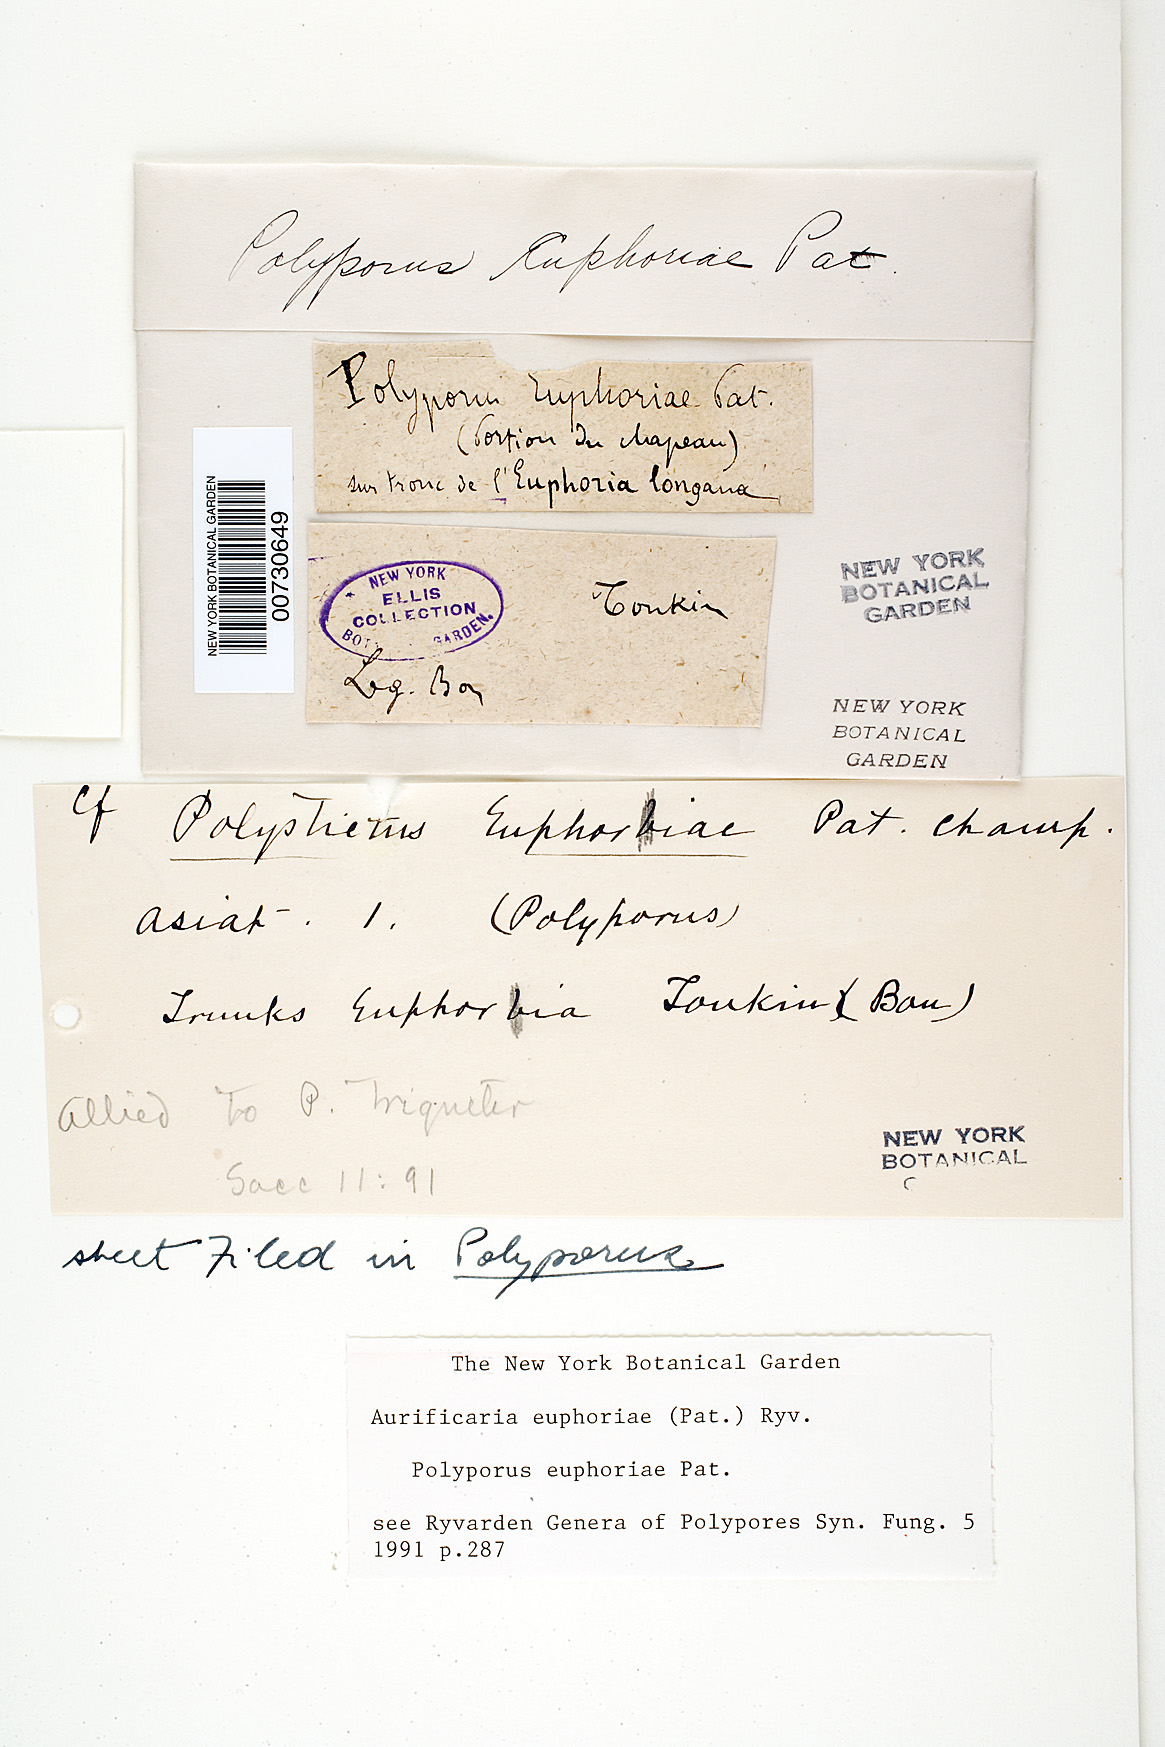 Polyporus Euphoriae Pat.
Polyporus Euphoriae Pat.
(Portion du chapeau)
sur tronc de l'Euphoria longana
NEW YORK BOTANICAL GARDEN
00730649
NEW YORK
ELLIS
COLLECTION
BOT GARDEN.
Tonkin
Leg. Bon
NEW YORK
BOTANICAL
GARDEN
NEW YORK
BOTANICAL
GARDEN
Cf Polystictus Euphorbiae Pat. champ.
asiat. 1. (Polyporus)
Trunks Euphorbia Tonkin (Bon)
Allied to P. Triqueter
Sacc 11:91
NEW YORK
BOTANICAL
sheet Filed in Polyporus
The New York Botanical Garden
Aurificaria euphoriae (Pat.) Ryv.
Polyporus euphoriae Pat.
see Ryvarden Genera of Polypores Syn. Fung. 5
1991 p.287